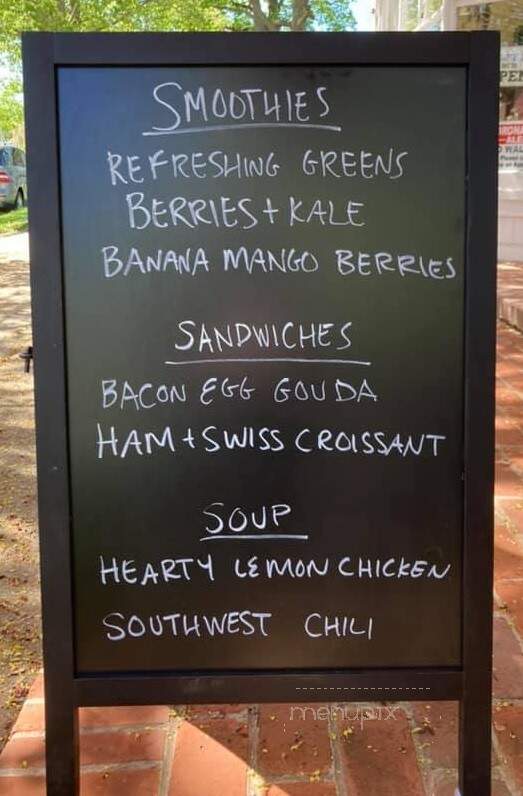 SMOOTHIES
REFRESHING GREENS
BERRIES + KALE
BANANA MANGO BERRIES
SANDWICHES
BACON EGG GOUDA
HAM + SWISS CROISSANT
SOUP
HEARTY LEMON CHICKEN
SOUTHWEST CHILI
menupix